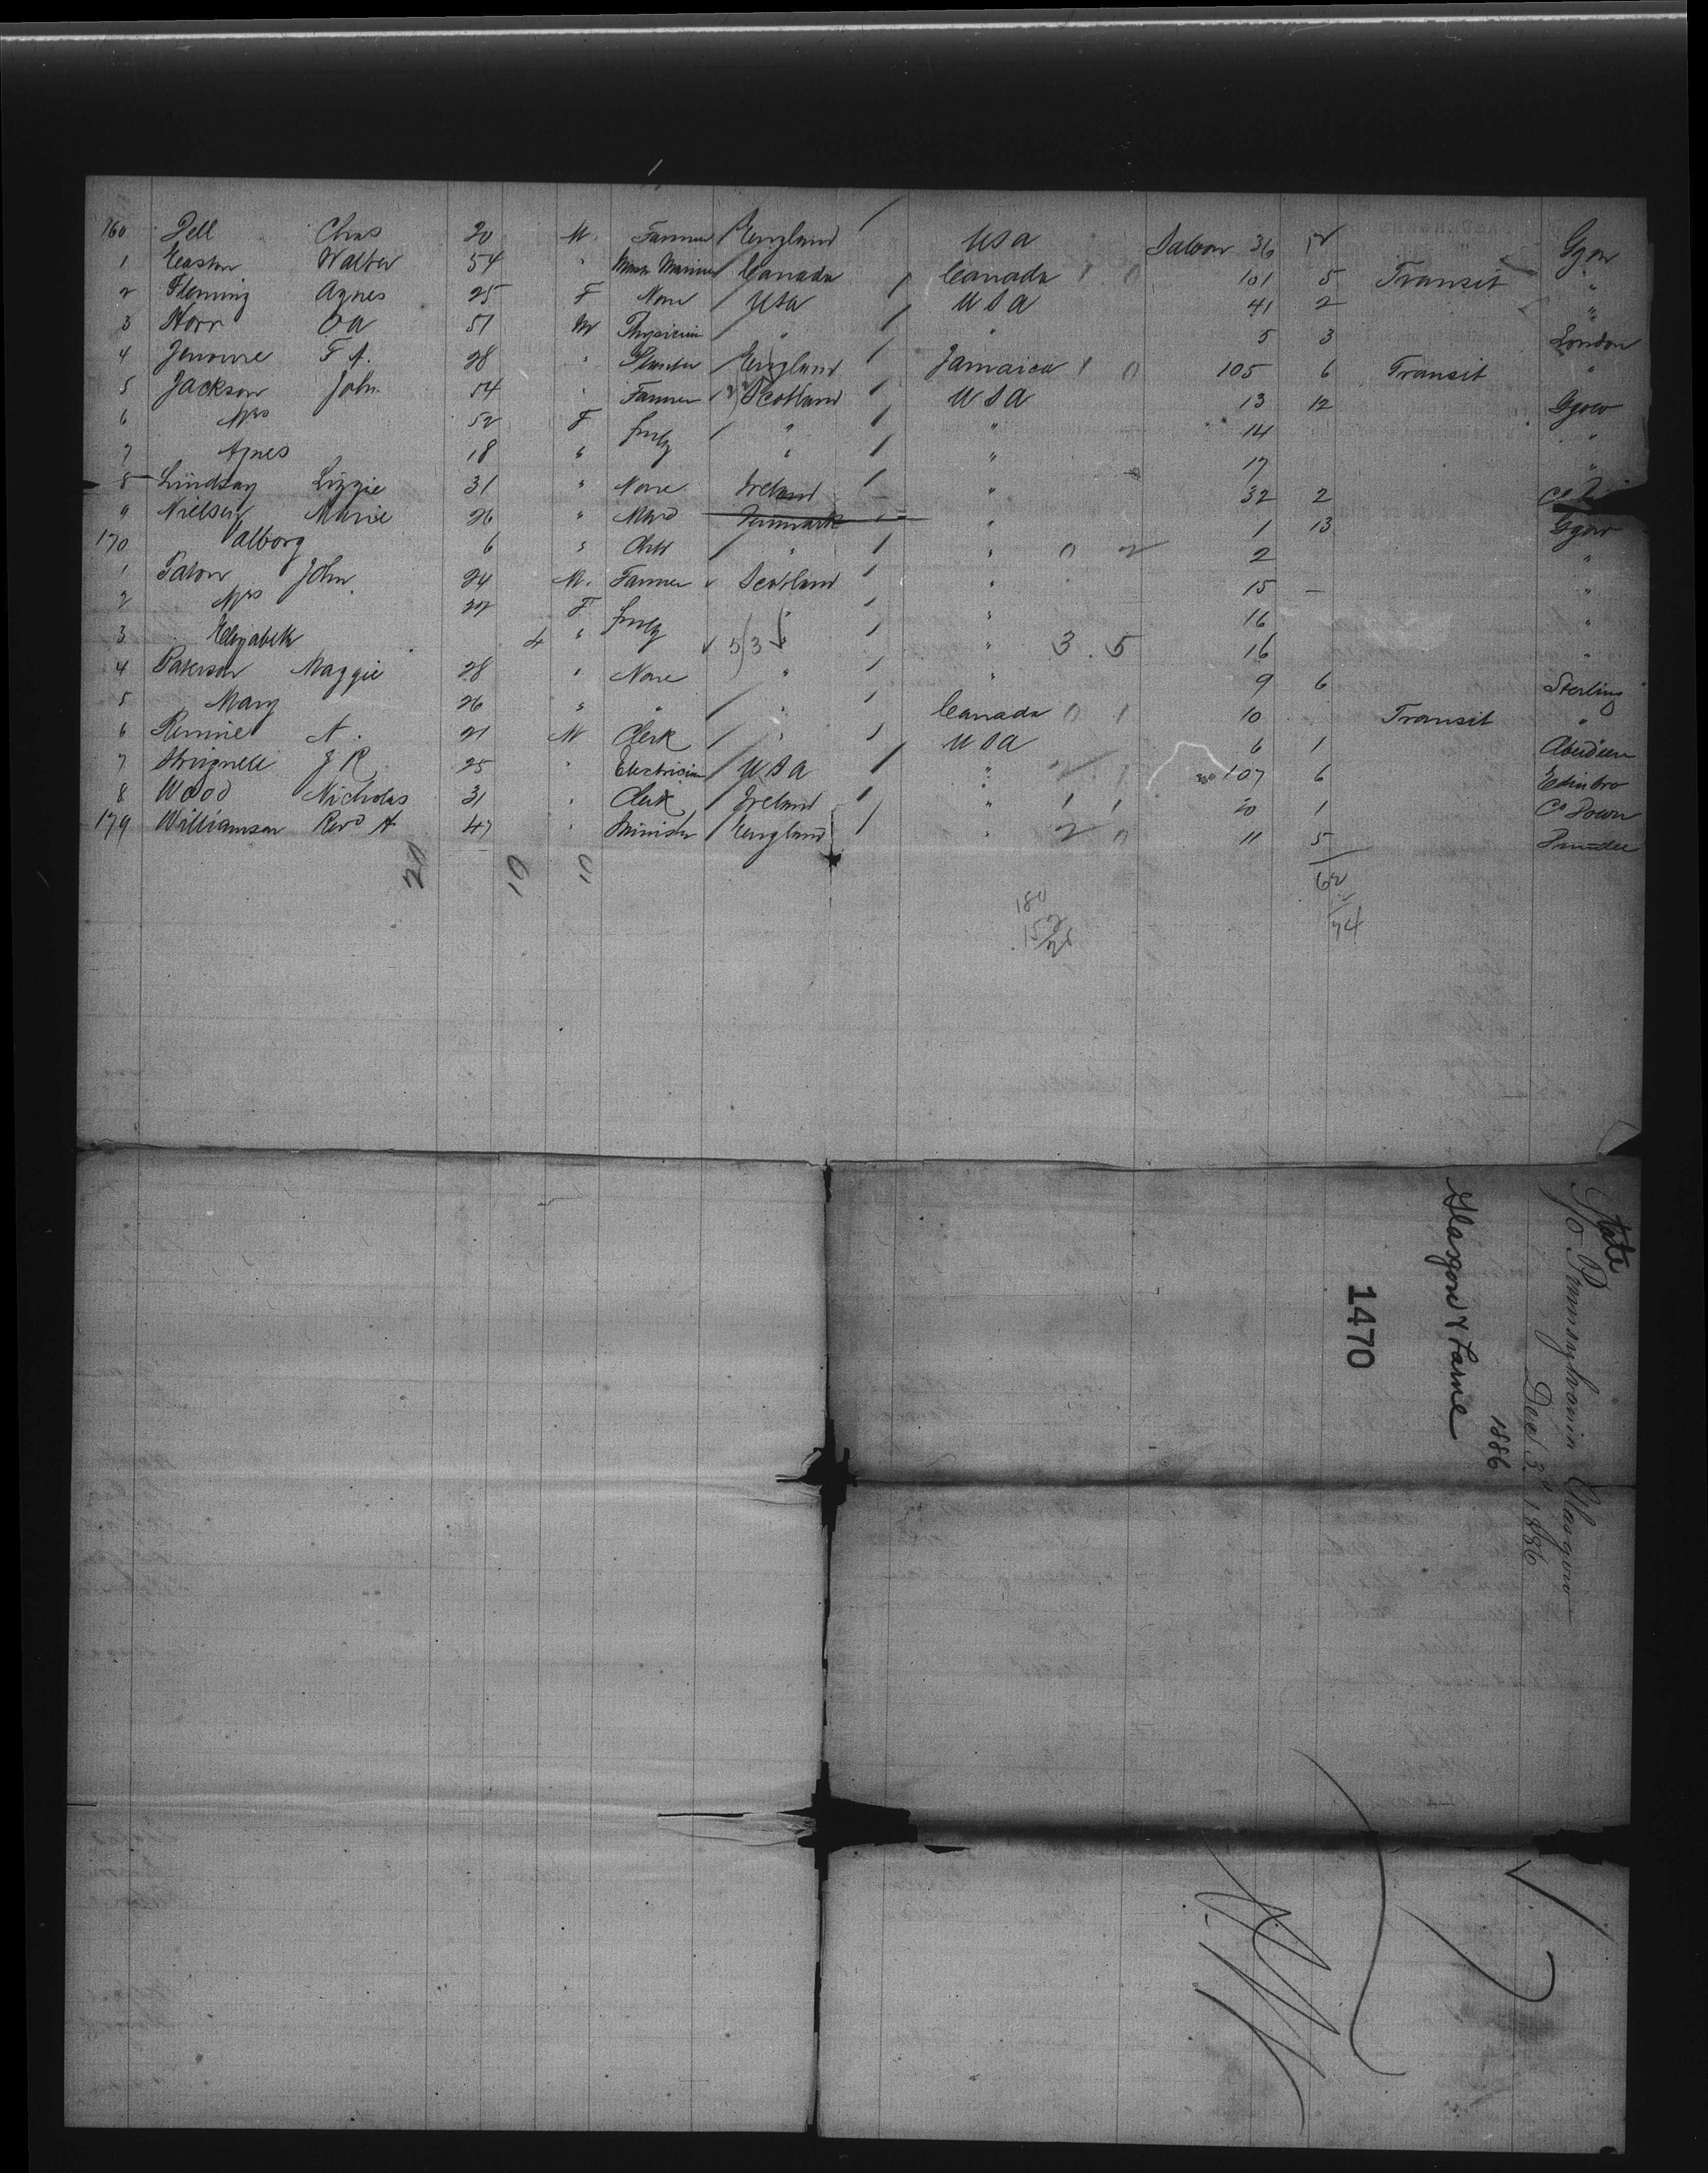 160 Dell Chas 20 M. Farmer England USA Saloon 36 Ggow
1 Easton Walter 54 " Mastr Mariner Canada Canada 101 5 Transit "
2 Fleming Agnes 25 F None USA USA 41 2 "
3 Horr O A 51 M Physician " " 5 3 London
4 Jerome F A. 28 " Planter England Jamaica 1 0 105 6 Transit "
5 Jackson John 54 " Farmer Scotland USA 13 12 Ggow
6 Mrs 52 F family " " 14 "
7 Agnes 18 " " " 17 "
8 Lindsay Lizzie 31 " None Ireland " 32 2 Co
9 Nielsen Marie 26 " Maid Denmark " 1 13 Ggow
170 Valborg 6 " Child " " 0 2 2 "
1 Paton John 24 M. Farmer Scotland " 15 "
2 Mrs 22 F family " " 16 "
3 Elizabeth 4 " 5 3 " " 3 5 16 "
4 Paterson Maggie 28 " None " " 9 6 Sterling
5 Mary 26 " " " Canada 0 1 10 Transit "
6 Rennie A. 21 M Clerk " USA 6 1 Aberdeen
7 J R 25 " Electrician USA " 107 6 Edinbro
8 Wood Nicholas 31 " Clerk Ireland " 1 1 20 1 Co Down
179 Williamson Revd A 47 " Minister England " 2 0 11 5 Dundee
20 10 10
62
74
180
152
28
State
Pennsylvania Glasgow
Dec 3d 1886
1886
Glasgow & Larne
1470